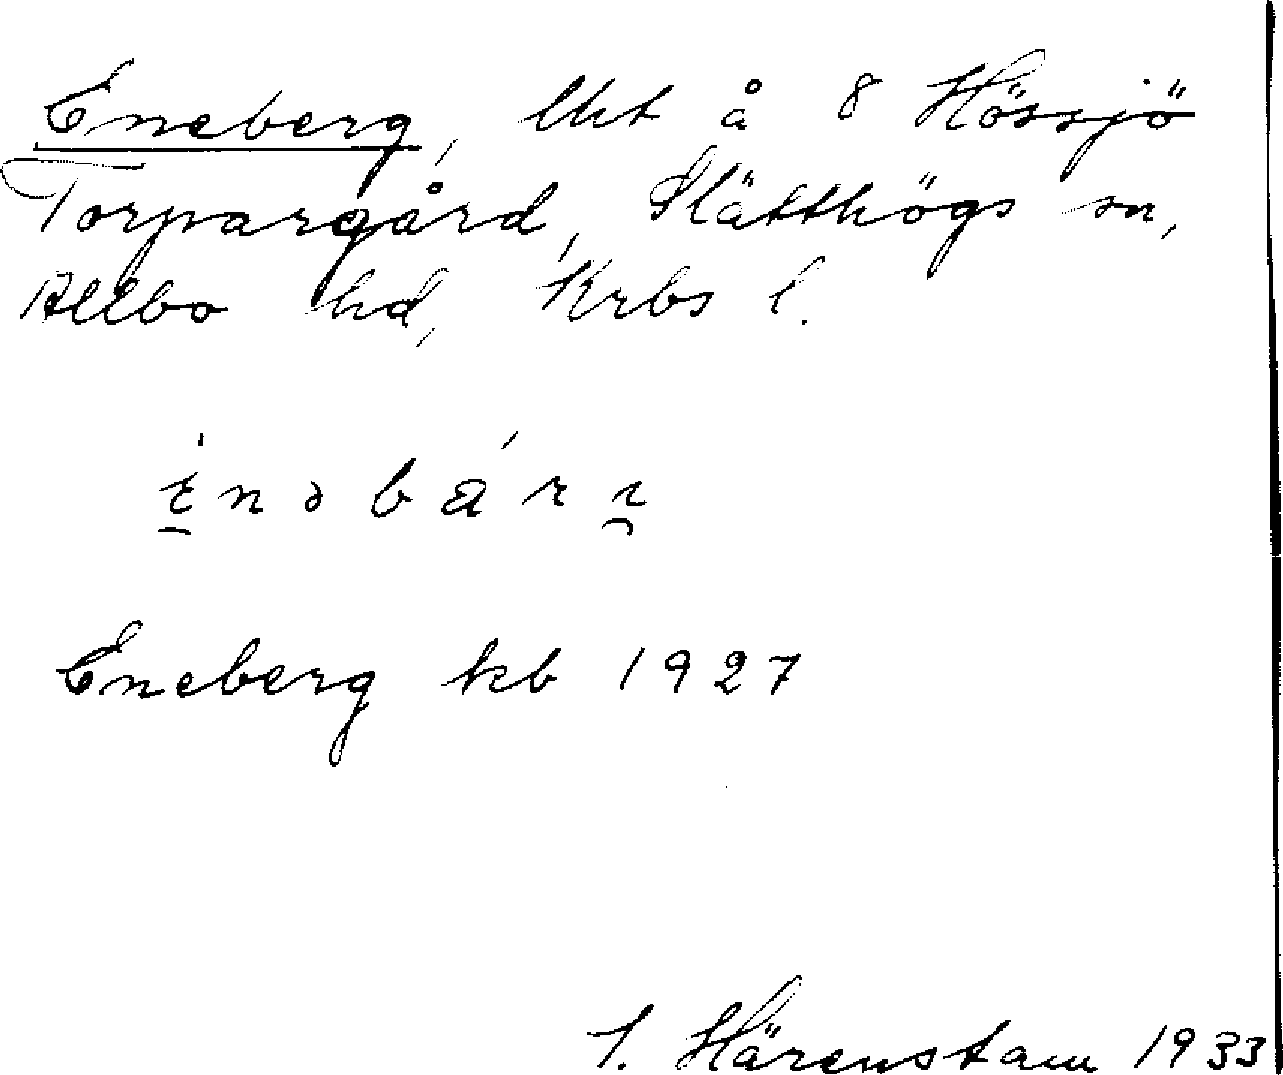 Eneberg, lht å 8 Hössjö
Torpargård, Slätthögs sn,
Allbo hd, Krbs l.
Eneberg kb 1927
Härenstam 1933